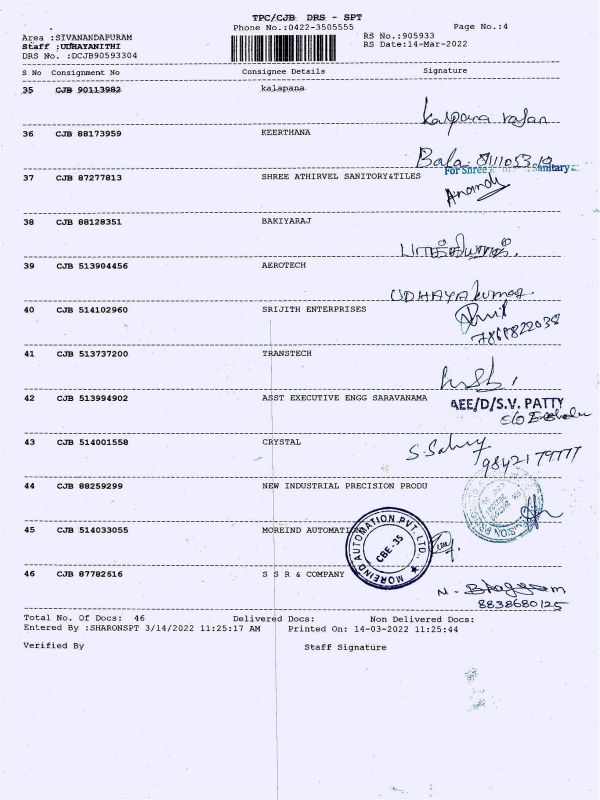 TPC/CJB DRS - SPT
Phone No.:0422-3505555
Page No.:4
Area :SIVANANDAPURAM
RS No.:905933
Staff :UDHAYANITHI
RS Date:14-Mar-2022
DRS No. :DCJB90593304
S No Consignment No Consignee Details Signature
35 CJB 90113982 kalapana
Kalpana rajan
36 CJB 88173959 KEERTHANA
Bala
37 CJB 87277813 SHREE ATHIRVEL SANITORY&TILES
For Shree Sanitary
Anandh
38 CJB 88128351 BAKIYARAJ
பாக்கியராஜ்.
39 CJB 513904456 AEROTECH
UDHAYAkumar
40 CJB 514102960 SRIJITH ENTERPRISES
7868822038
41 CJB 513737200 TRANSTECH
42 CJB 513994902 ASST EXECUTIVE ENGG SARAVANAMA
AEE/D/S.V. PATTY
43 CJB 514001558 CRYSTAL
9842179777
44 CJB 88259299 NEW INDUSTRIAL PRECISION PRODU
45 CJB 514033055 MOREIND AUTOMATION
MOREIND AUTOMATION PVT. LTD.
CBE-35
46 CJB 87782616 S S R & COMPANY
8838680125
Total No. Of Docs: 46 Delivered Docs: Non Delivered Docs:
Entered By :SHARONSPT 3/14/2022 11:25:17 AM Printed On: 14-03-2022 11:25:44
Verified By Staff Signature